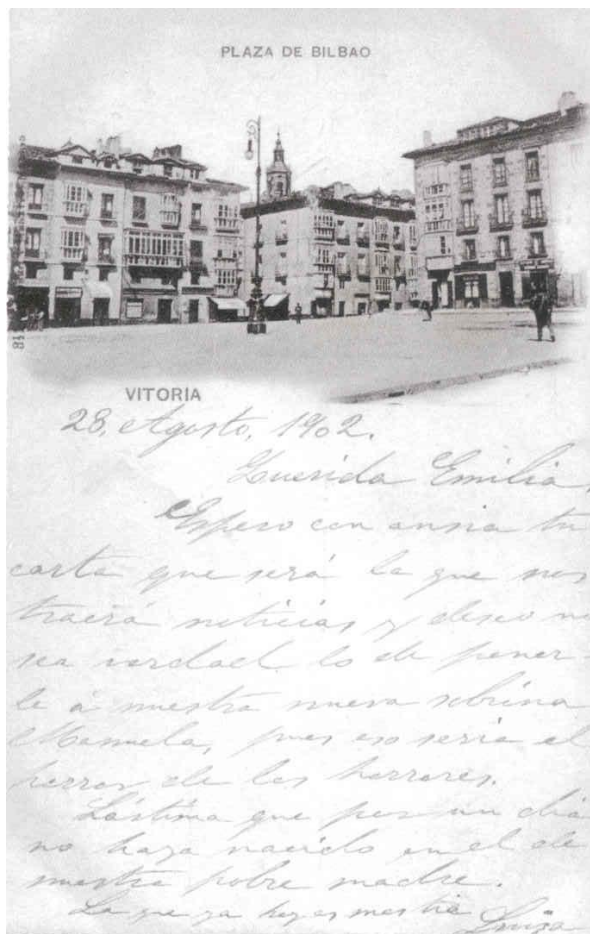 PLAZA DE BILBAO
18
VITORIA
28, Agosto, 1902.
Querida Emilia,
Espero con ansia tu
carta que será la que nos
traerá noticias y deseo no
sea verdad lo de poner-
le á nuestra nueva sobrina
Manuela, pues eso seria el
horror de los horrores.
Lástima que por un dia
no haya nacido en el de
nuestra pobre madre.
La que ya hoy es
Luisa